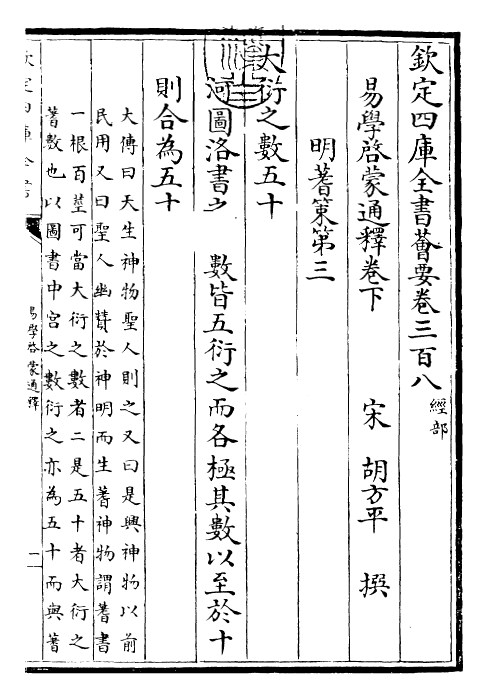 欽定四庫全書薈要卷三百八 經部
易學啓蒙通釋卷下 宋 胡方平 撰
明蓍策第三
大衍之數五十
河圖洛書之 數皆五衍之而各極其數以至於十
則合為五十
大傳曰天生神物聖人則之又曰是興神物以前
民用又曰聖人幽贊於神明而生蓍神物謂蓍書
一根百莖可當大衍之數者二是五十者大衍之
蓍數也以圖書中宮之數衍之亦為五十而與蓍
易學啓蒙通釋
一